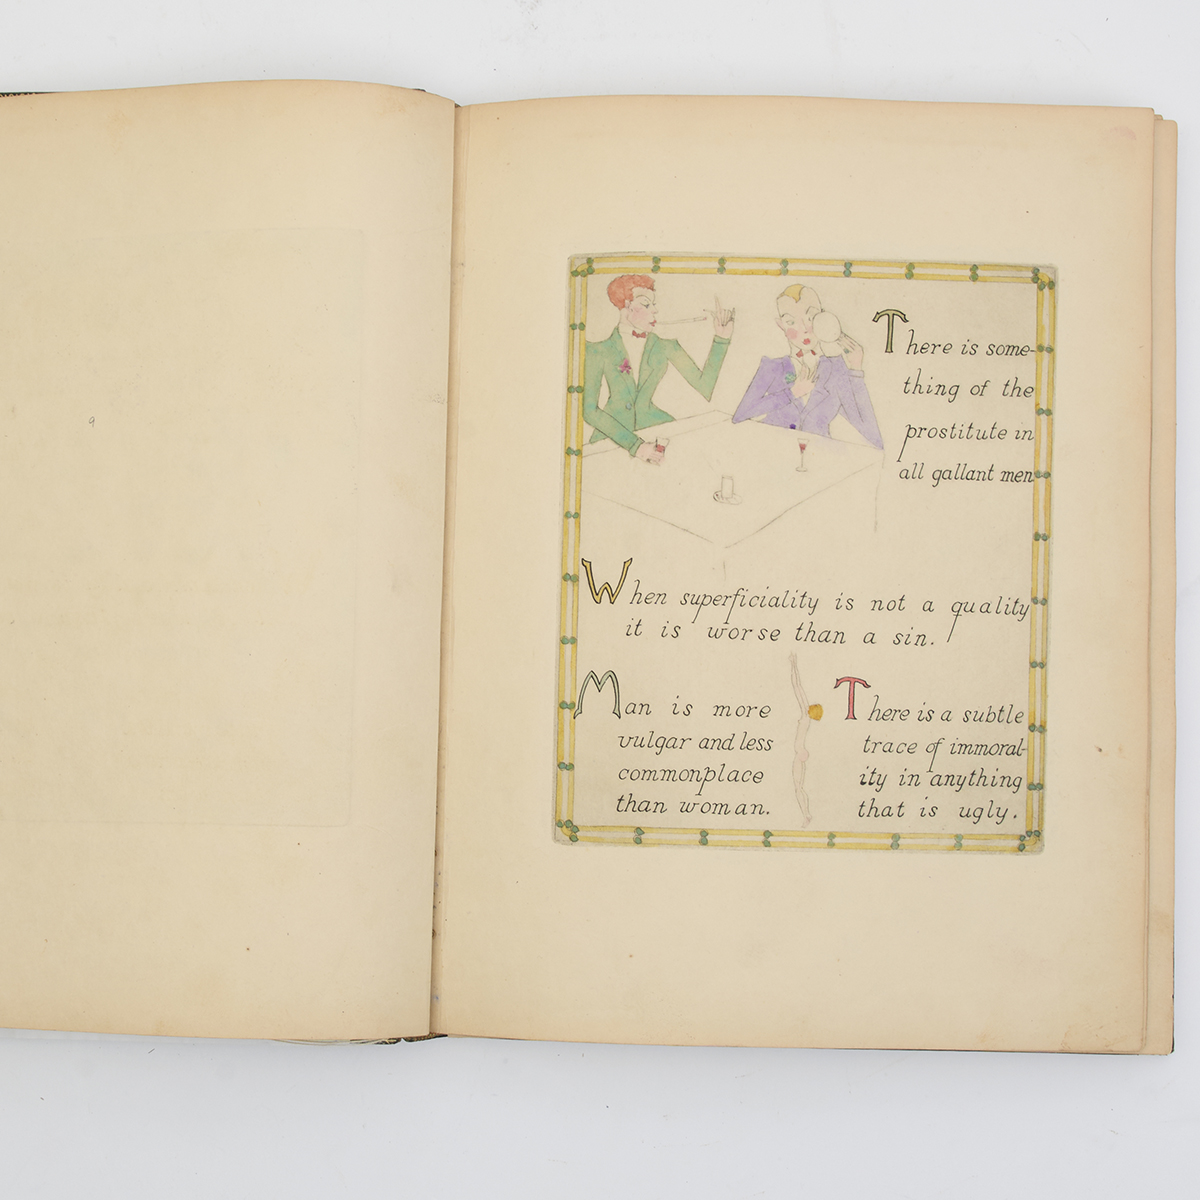 9
There is some-
thing of the
prostitute in
all gallant men
When superficiality is not a quality
it is worse than a sin.
Man is more
vulgar and less
commonplace
than woman.
There is a subtle
trace of immoral-
ity in anything
that is ugly.